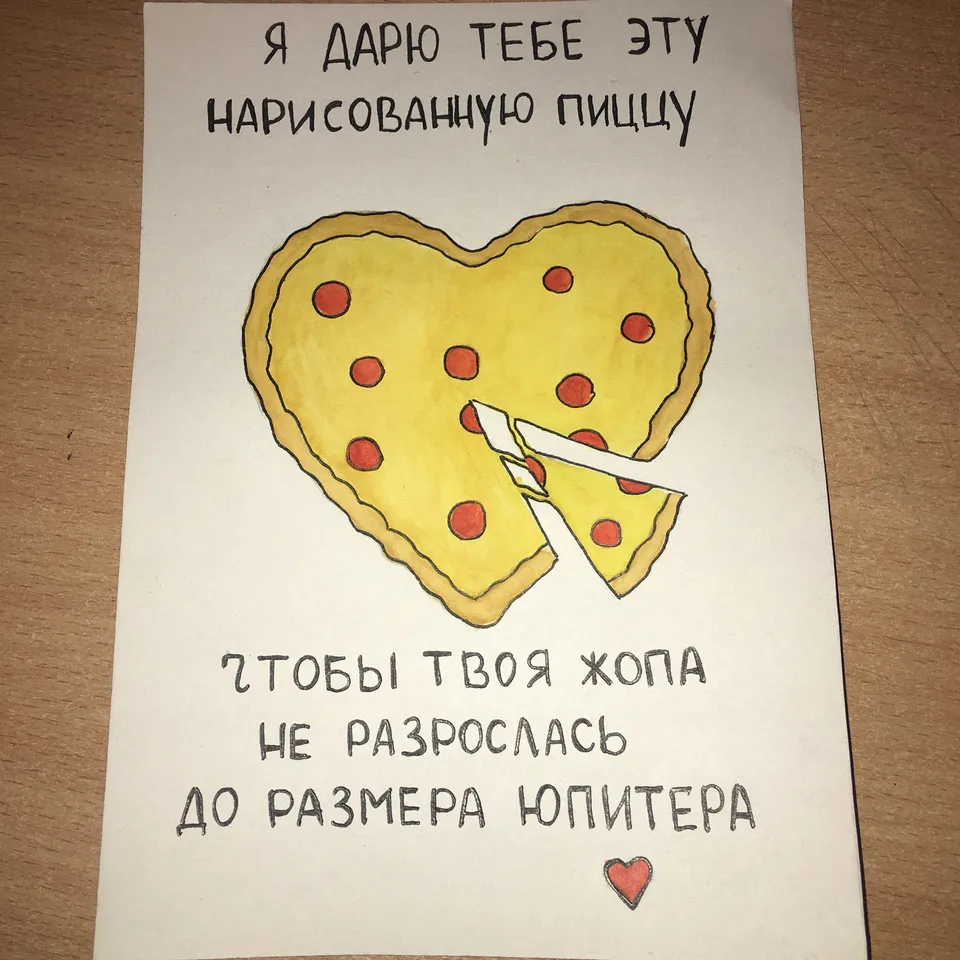 Я ДАРЮ ТЕБЕ ЭТУ
НАРИСОВАННУЮ ПИЦЦУ
ЧТОБЫ ТВОЯ ЖОПА
НЕ РАЗРОСЛАСЬ
ДО РАЗМЕРА ЮПИТЕРА